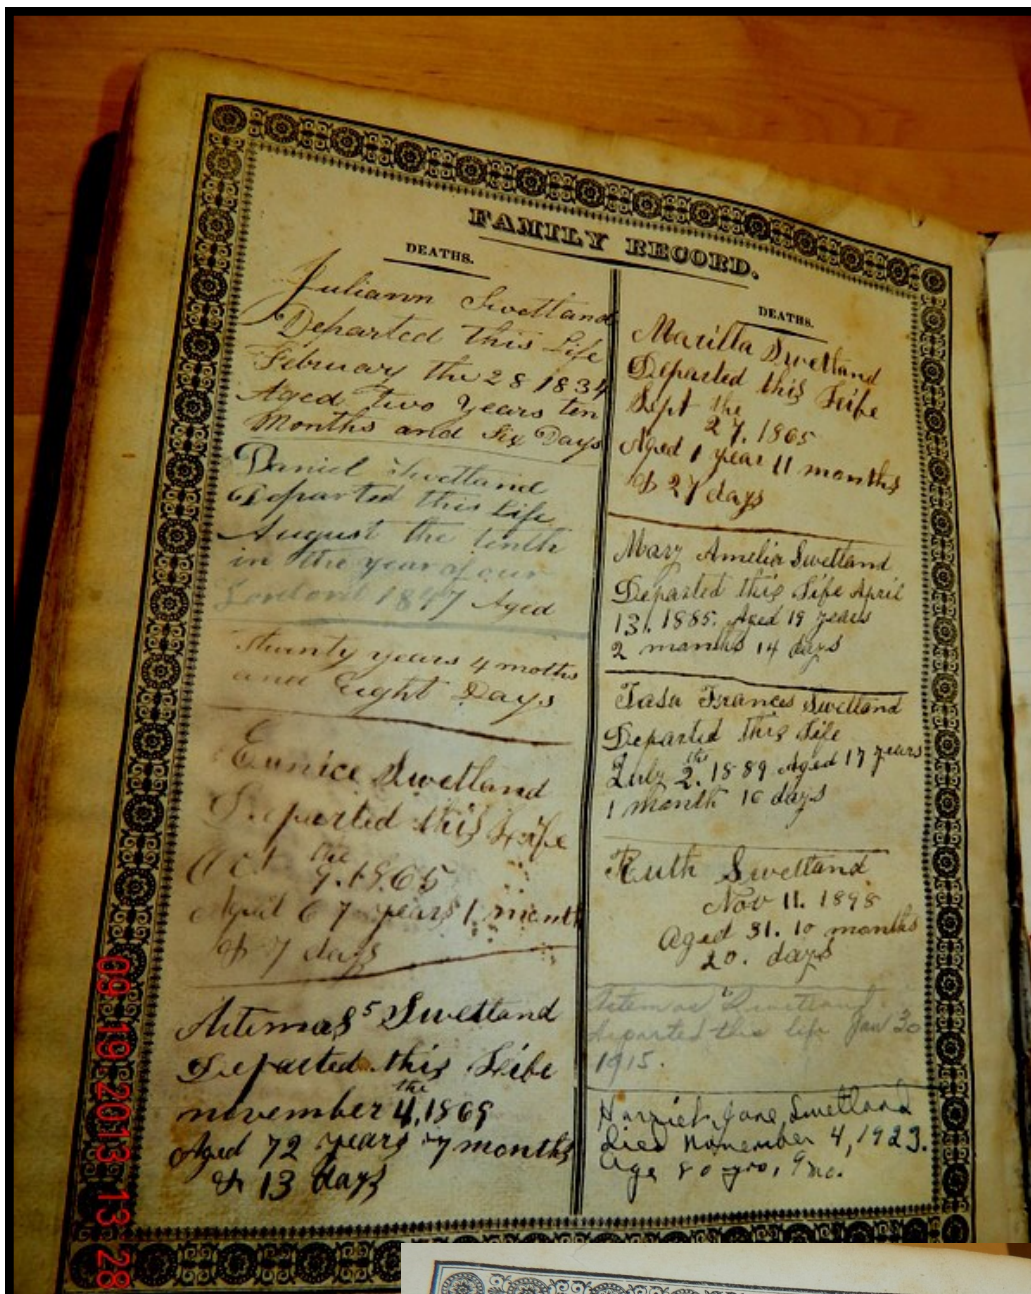 FAMILY RECORD.
DEATHS.
Juliann Swetland
Departed this Life
February the 28 1834
Aged two years ten
Months and Six Days
Daniel Swetland
Departed this Life
August the tenth
in the year of our
1847 Aged
Twenty years 4 moths
and Eight Days
Eunice Swetland
Departed this Leife
Oct the 9. 1865
Aged 67 years 1 month
& 7 days
Artemas 5 Swetland
Departed this Leife
november the 4, 1869
Aged 72 years 7 months
& 13 days
DEATHS.
Marilla Swetland
Departed this Leife
Sept the
27. 1865
Aged 1 year 11 months
& 27 days
Mary Amelia Swetland
Departed this Life April
13, 1885. Aged 19 years
2 months 14 days
Frances Swetland
Departed this Life
July 2. the 1889 Aged 17 years
1 month 10 days
Ruth Swetland
Nov 11. 1898
Aged 31. 10 months
20. days
Artemas Swetland
departed this life Jan 30
1915.
Harriet Jane Swetland
died November 4, 1923.
Age 80 yrs, 9 mo.
09 19 2013 13 28